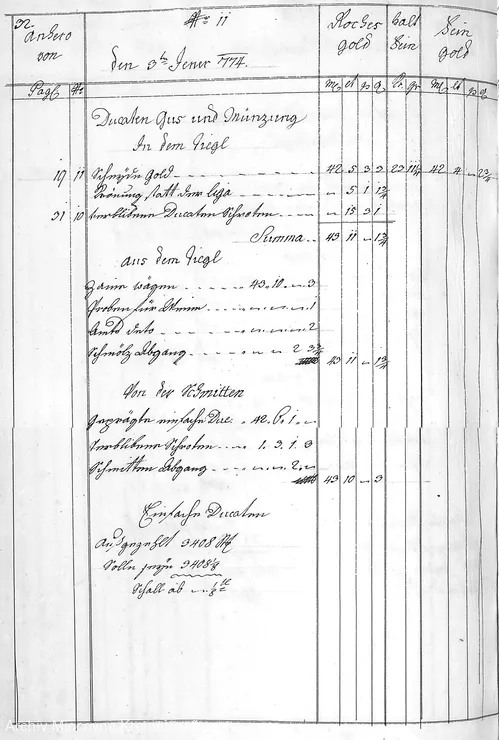 32.
No 11
Anhero von
den 3t Jener 1774.
Roches gold
halt fein
Fein gold
Pag: No
m l q d
kr gr
m l q d
Ducaten Gus und Münzung
In dem Tiegl
19 11 Scheyde Gold 42 5 3 3 23 42 4
Krönung statt der lega 5 1 1¾
31 10 verblibene Ducaten Schroten 15 3 1
Summa 43 11 1¾
Aus dem Tiegl
Zaine wägen 43. 10. 3
Proben für Wienn 1
Amts deto 2
Schmölz Abgang 2 3¾ 43 11 1¾
Von der Schmitten
Geprägte einfache Duc. 42. 6. 1.
Verblibene Schroten 1. 3. 1. 3
Schmitten Abgang 2. 43 10 3
Einfache Ducaten
Ausgezehlt 3408
Solle seyn 3408⅛
Schall ab ⅛